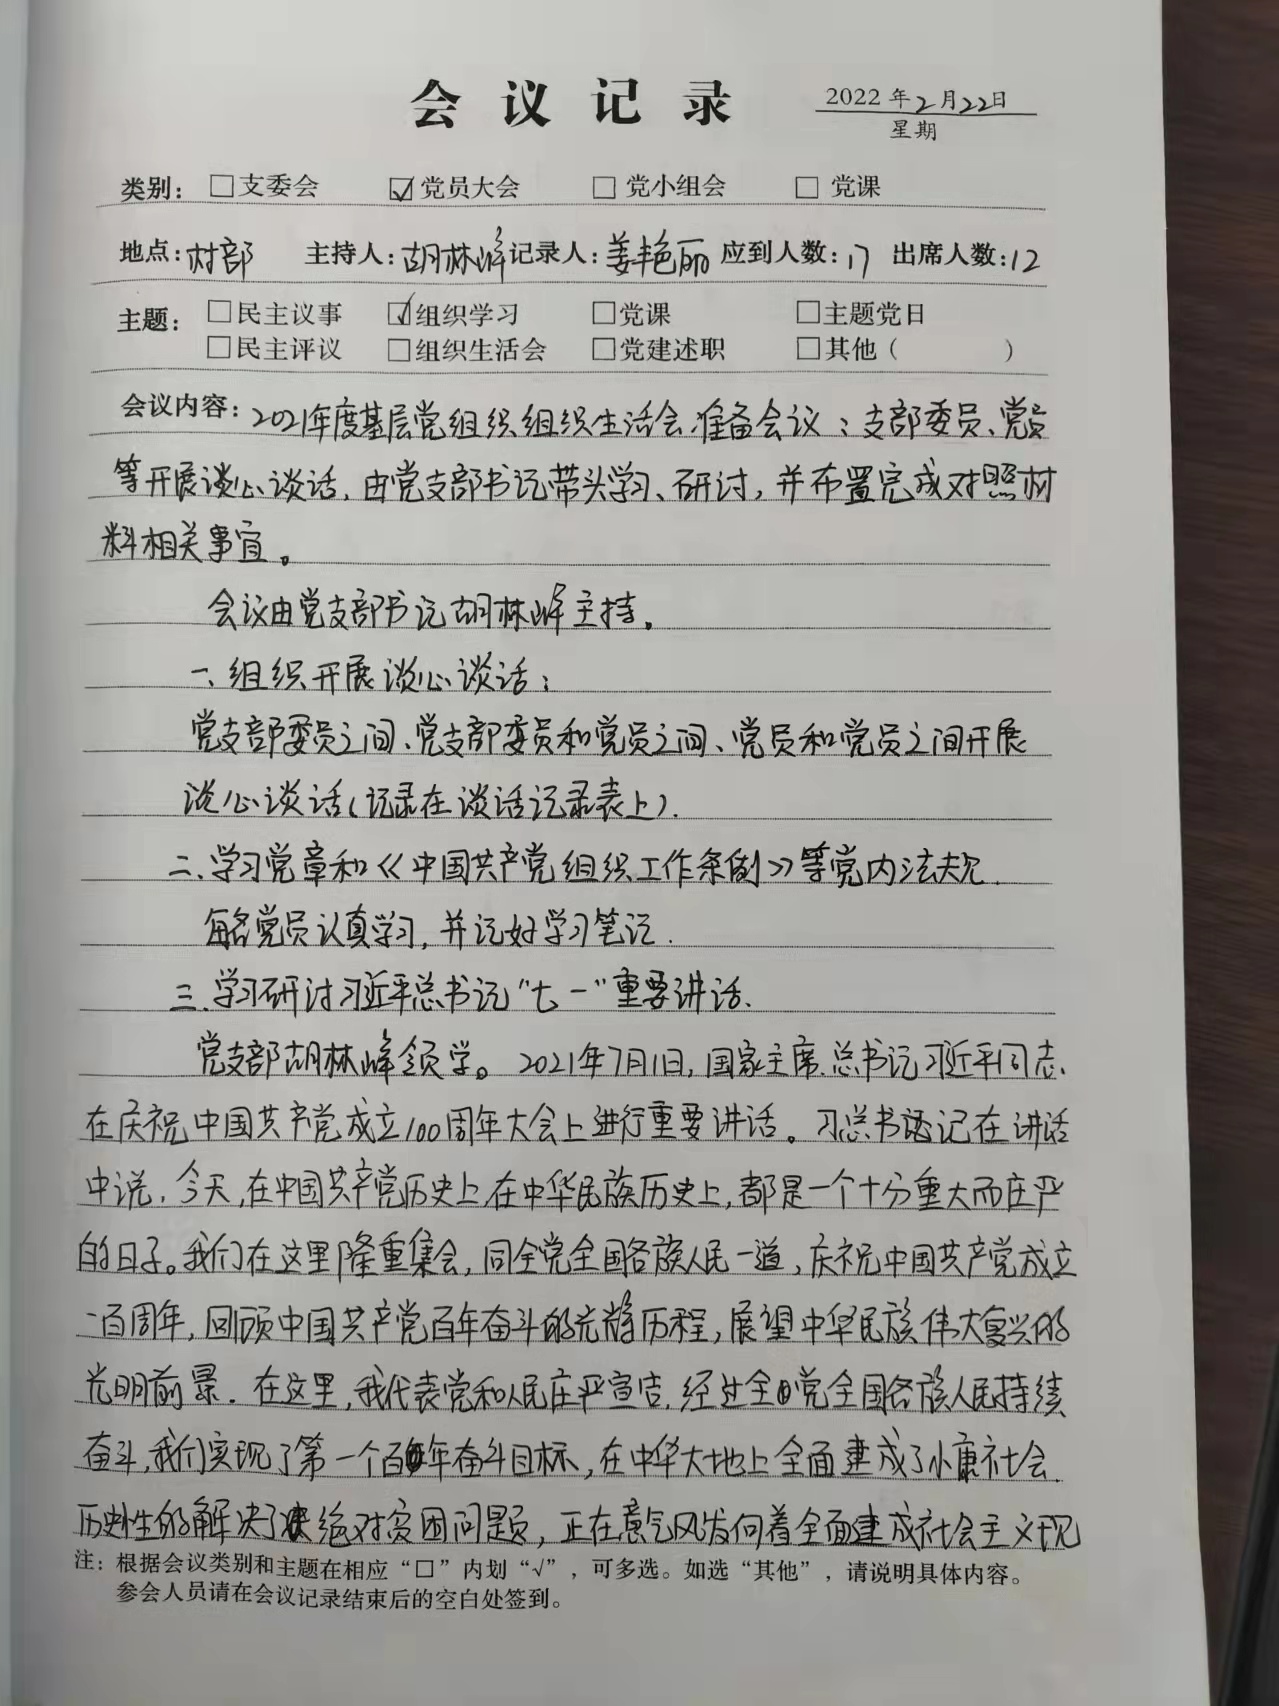 会议记录
2022年2月22日
星期
类别：□支委会 ☑党员大会 □党小组会 □党课
地点：村部 主持人：胡林峰 记录人：姜艳丽 应到人数：17 出席人数：12
主题：□民主议事 ☑组织学习 □党课 □主题党日
□民主评议 □组织生活会 □党建述职 □其他（ ）
会议内容：2021年度基层党组织组织生活会准备会议：支部委员、党员
等开展谈心谈话，由党支部书记带头学习、研讨，并布置完成对照材
料相关事宜。
会议由党支部书记胡林峰主持。
一、组织开展谈心谈话：
党支部委员之间、党支部委员和党员之间、党员和党员之间开展
谈心谈话（记录在谈话记录表上）.
二、学习党章和《中国共产党组织工作条例》等党内法规.
每名党员认真学习，并记好学习笔记.
三、学习研讨习近平总书记“七一”重要讲话.
党支部胡林峰领学。2021年7月1日，国家主席、总书记习近平同志，
在庆祝中国共产党成立100周年大会上进行重要讲话。习总书记在讲话
中说，今天，在中国共产党历史上，在中华民族历史上，都是一个十分重大而庄严
的日子。我们在这里隆重集会，同全党全国各族人民一道，庆祝中国共产党成立
一百周年，回顾中国共产党百年奋斗的光辉历程，展望中华民族伟大复兴的
光明前景．在这里，我代表党和人民庄严宣告，经过全党全国各族人民持续
奋斗，我们实现了第一个百年奋斗目标，在中华大地上全面建成了小康社会，
历史性的解决了绝对贫困问题，正在意气风发向着全面建成社会主义现
注：根据会议类别和主题在相应“□”内划“√”，可多选。如选“其他”，请说明具体内容。
参会人员请在会议记录结束后的空白处签到。